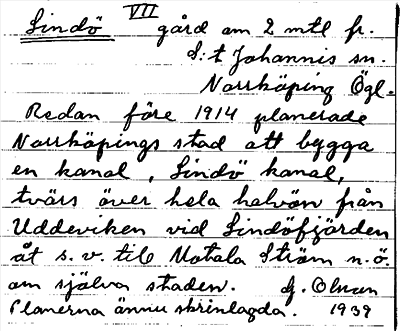 Lindö VII gård om 2 mtl fr.
S:t Johannis sn.
Norrköping Ögl.
Redan före 1914 planerade
Norrköpings stad att bygga
en kanal, Lindö kanal,
tvärs över hela halvön från
Uddeviken vid Lindöfjärden
åt s.v. till Motala Ström n.ö.
om själva staden. G. Olson
Planerna ännu skrinlagda. 1939